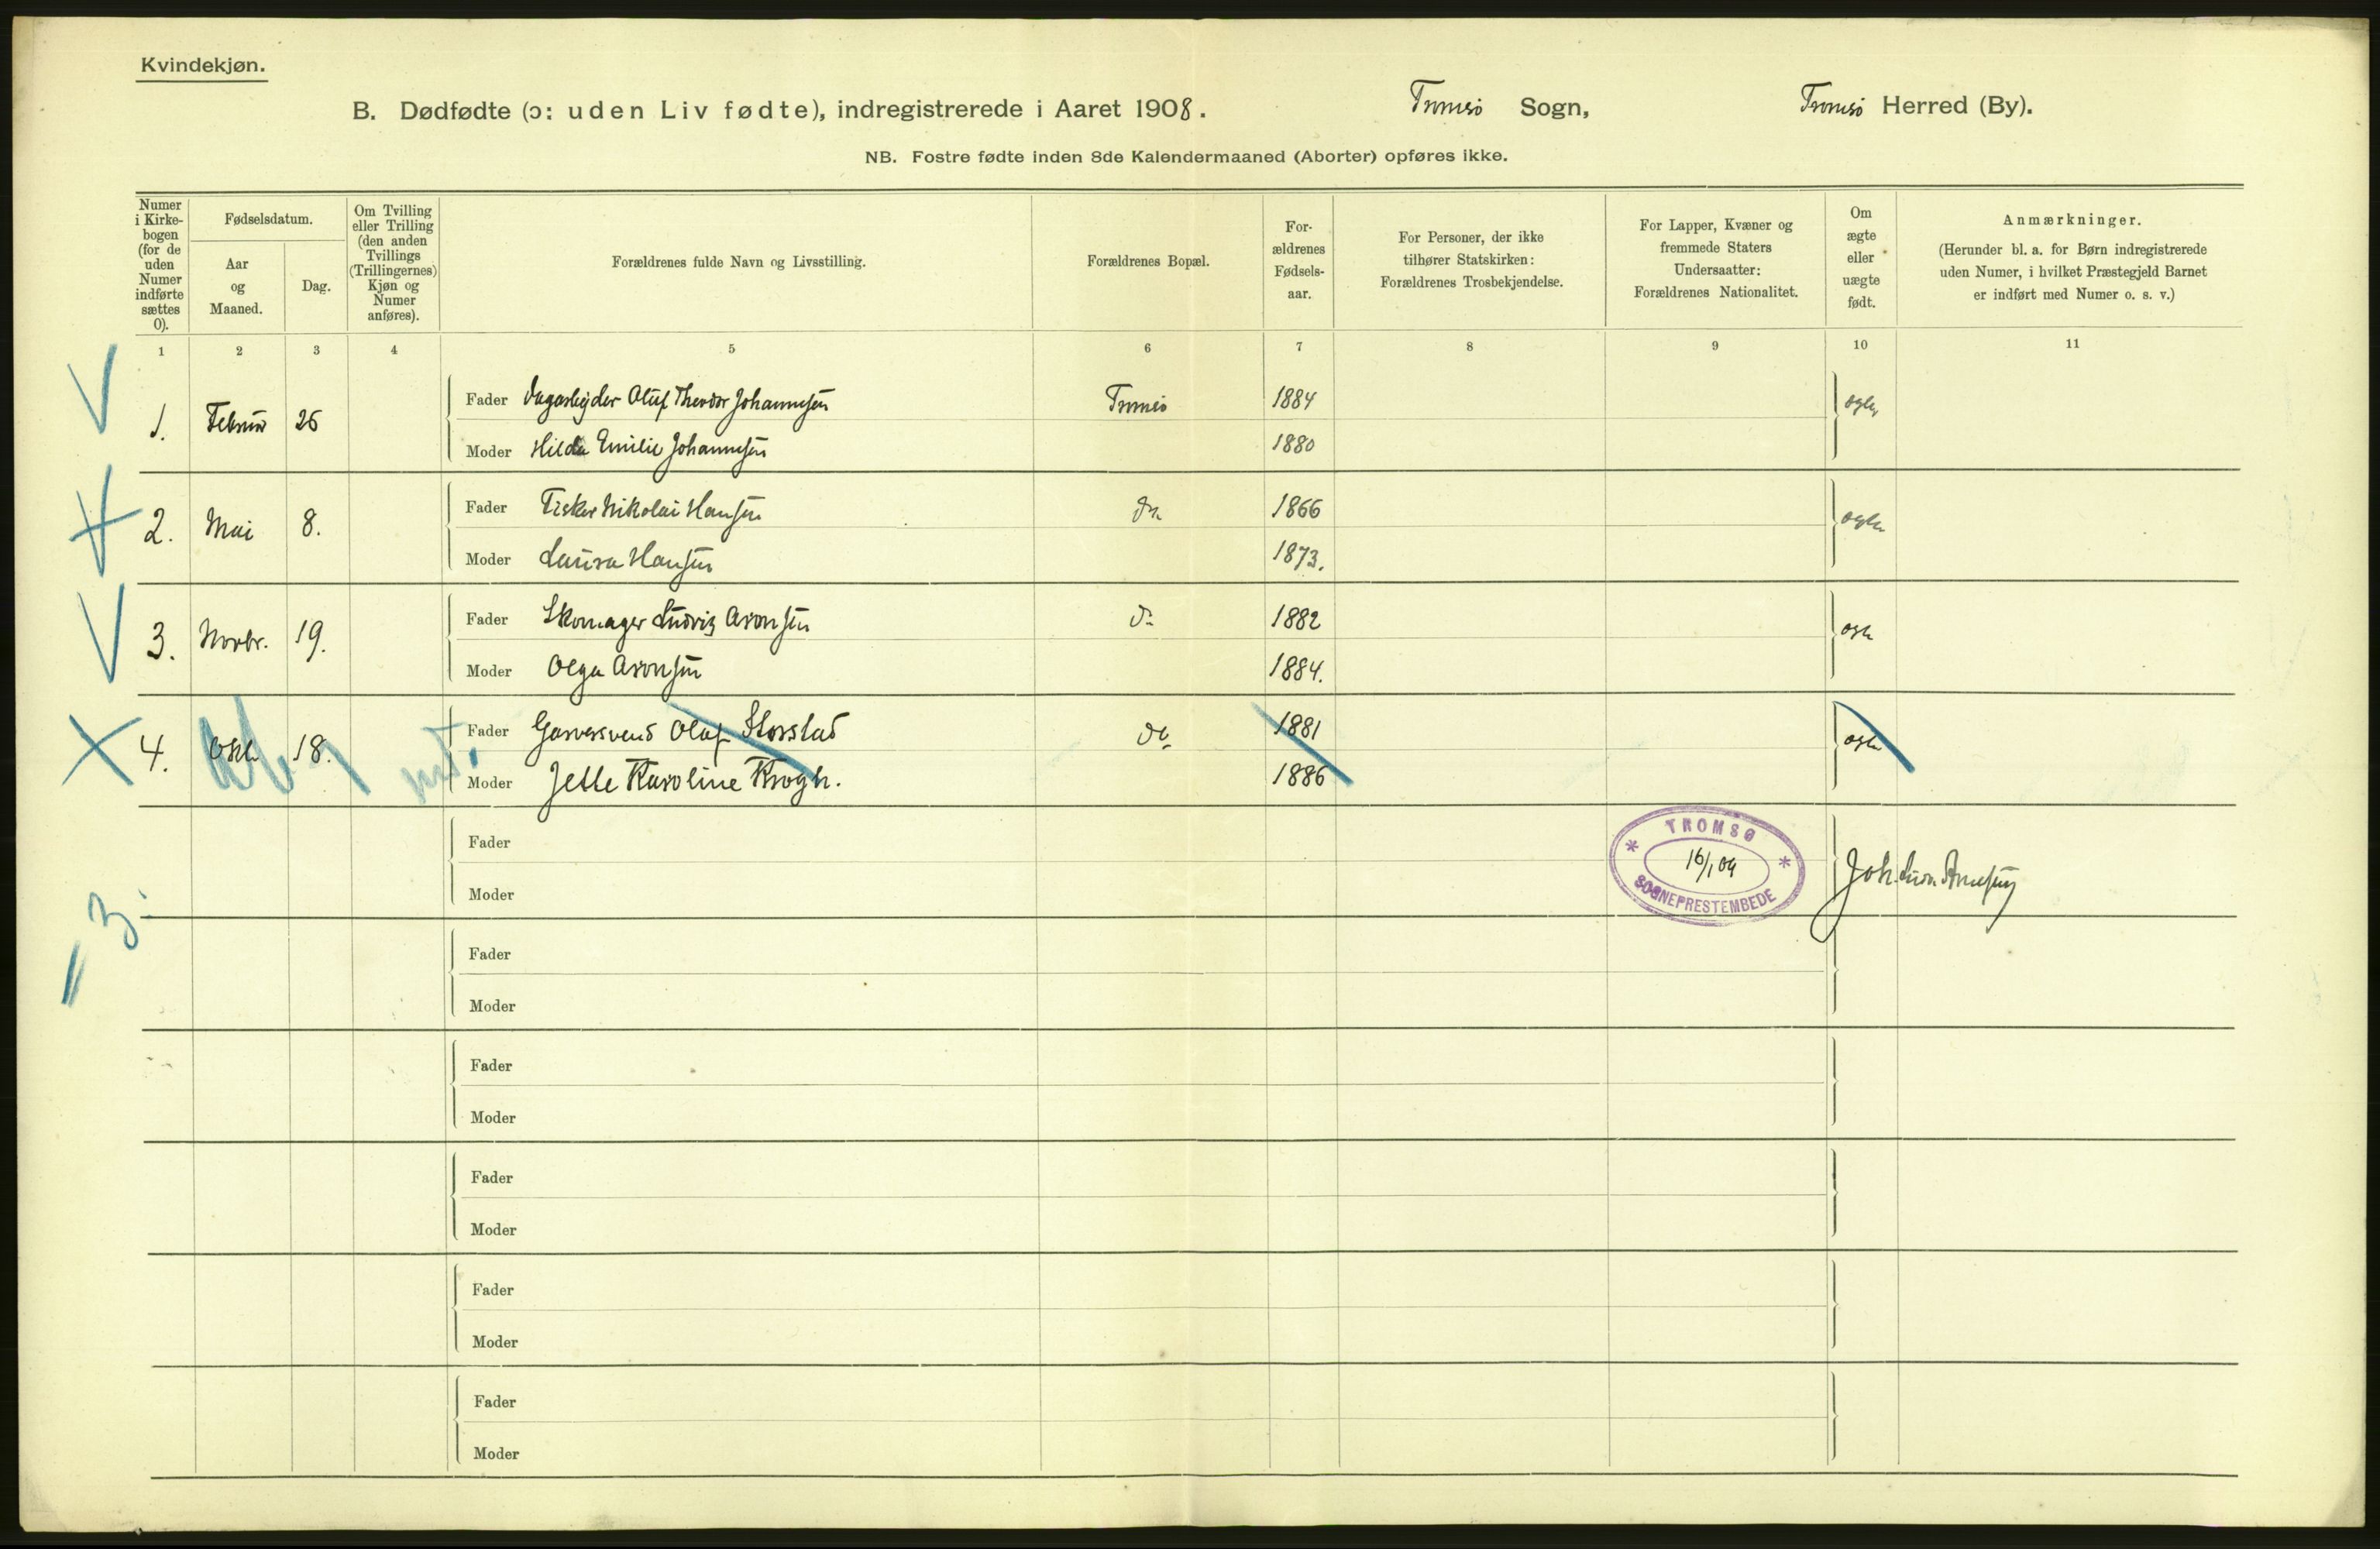 Kvindekjøn.
B. Dødfødte (ɔ: uden Liv fødte), indregistrerede i Aaret 1908. Tromsø Sogn, Tromsø Herred (By).
NB. Fostre fødte inden 8de Kalendermaaned (Aborter) opføres ikke.
Numer i Kirke-bogen (for de uden Numer indførte sættes 0).
Fødselsdatum.
Aar og Maaned.
Dag.
Om Tvilling eller Trilling (den anden Tvillings (Trillingernes) Kjøn og Numer anføres).
Forældrenes fulde Navn og Livsstilling.
Forældrenes Bopæl.
For-ældrenes Fødsels-aar.
For Personer, der ikke tilhører Statskirken: Forældrenes Trosbekjendelse.
For Lapper, Kvæner og fremmede Staters Undersaatter: Forældrenes Nationalitet.
Om ægte eller uægte født.
Anmærkninger.
(Herunder bl. a. for Børn indregistrerede uden Numer, i hvilket Præstegjeld Barnet er indført med Numer o. s. v.)
1 2 3 4 5 6 7 8 9 10 11
1. Februar 26 Fader Dagarbejder Oluf Theodor Johannesen Tromsø 1884 ægte
Moder Hilda Emilie Johannesen 1880
2. Mai 8. Fader Fisker Nikolai Hansen do 1866 ægte
Moder Laura Hansen 1873.
3. Novbr. 19. Fader Skomager Ludvig Aronsen do 1882 ægte
Moder Olga Aronsen 1884.
4. Okt 18. Fader Garversvend Olaf Storstad do 1881 ægte
Moder Jette Karoline Krogh. 1886
Fader
TROMSØ
16/1 09
SOGNEPRESTEMBEDE
Joh.
Moder
= 3.
Fader
Moder
Fader
Moder
Fader
Moder
Fader
Moder
Fader
Moder